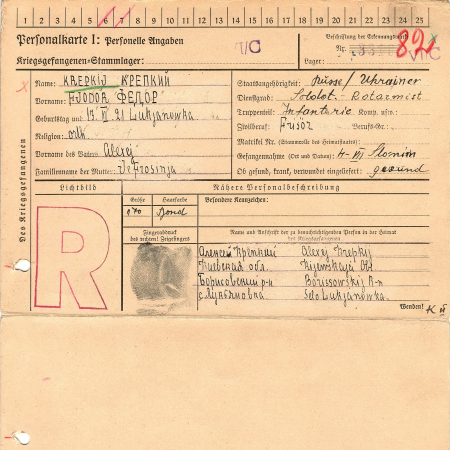 1 2 3 4 5 6 7 8 9 10 11 12 13 14 15 16 17 18 19 20 21 22 23 24 25
Personalkarte I: Personelle Angaben
Kriegsgefangenen-Stammlager:
VI/C
Beschriftung der Erkennungsmarke
Nr. 82
Lager: VI/C
Des Kriegsgefangenen
Name: KREPKIJ КРЕПКИЙ
Vorname: FJODOR ФЕДОР
Geburtstag und -ort 21 Lukjanowka
Religion: orth
Vorname des Vaters: Alexej
Familienname der Mutter: Jefrosinja
Staatsangehörigkeit: russe/Ukrainer
Dienstgrad: Soldat - Rotarmist
Truppenteil: Infanterie Komp. usw.:
Zivilberuf: Frisör Berufs-Gr.:
Matrikel Nr. (Stammrolle des Heimatstaates):
Gefangennahme (Ort und Datum): 4-VII Slonim
Ob gesund, krank, verwundet eingeliefert: gesund
Lichtbild
Nähere Personalbeschreibung
Größe Haarfarbe Besondere Kennzeichen:
blond
Fingerabdruck
des rechten! Zeigefingers
Name und Anschrift der zu benachrichtigenden Person in der Heimat
des Kriegsgefangenen
R
Алексей Крепкий Alexej Krepkij
Киевская обл. Kijewskaja Obl
Борисовский р-н Borissowskij R-n
с. Лукьяновка Selo Lukjanowka
Wenden!